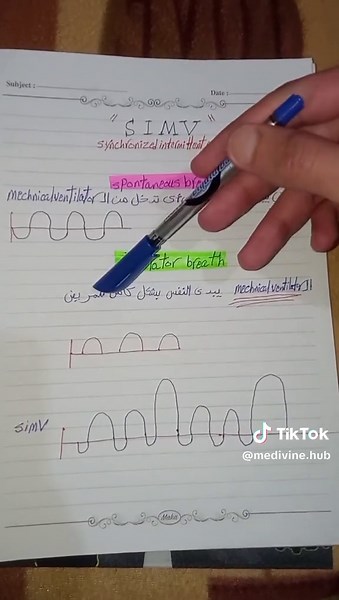 Subject :
Date :
" SIMV "
synchronized intermittent
spontaneous
mechnical ventilator تدخل من ال
breath
ال mechnical ventilator يبدى النفس بشكل
simv
Maka
TikTok
@medivine.hub